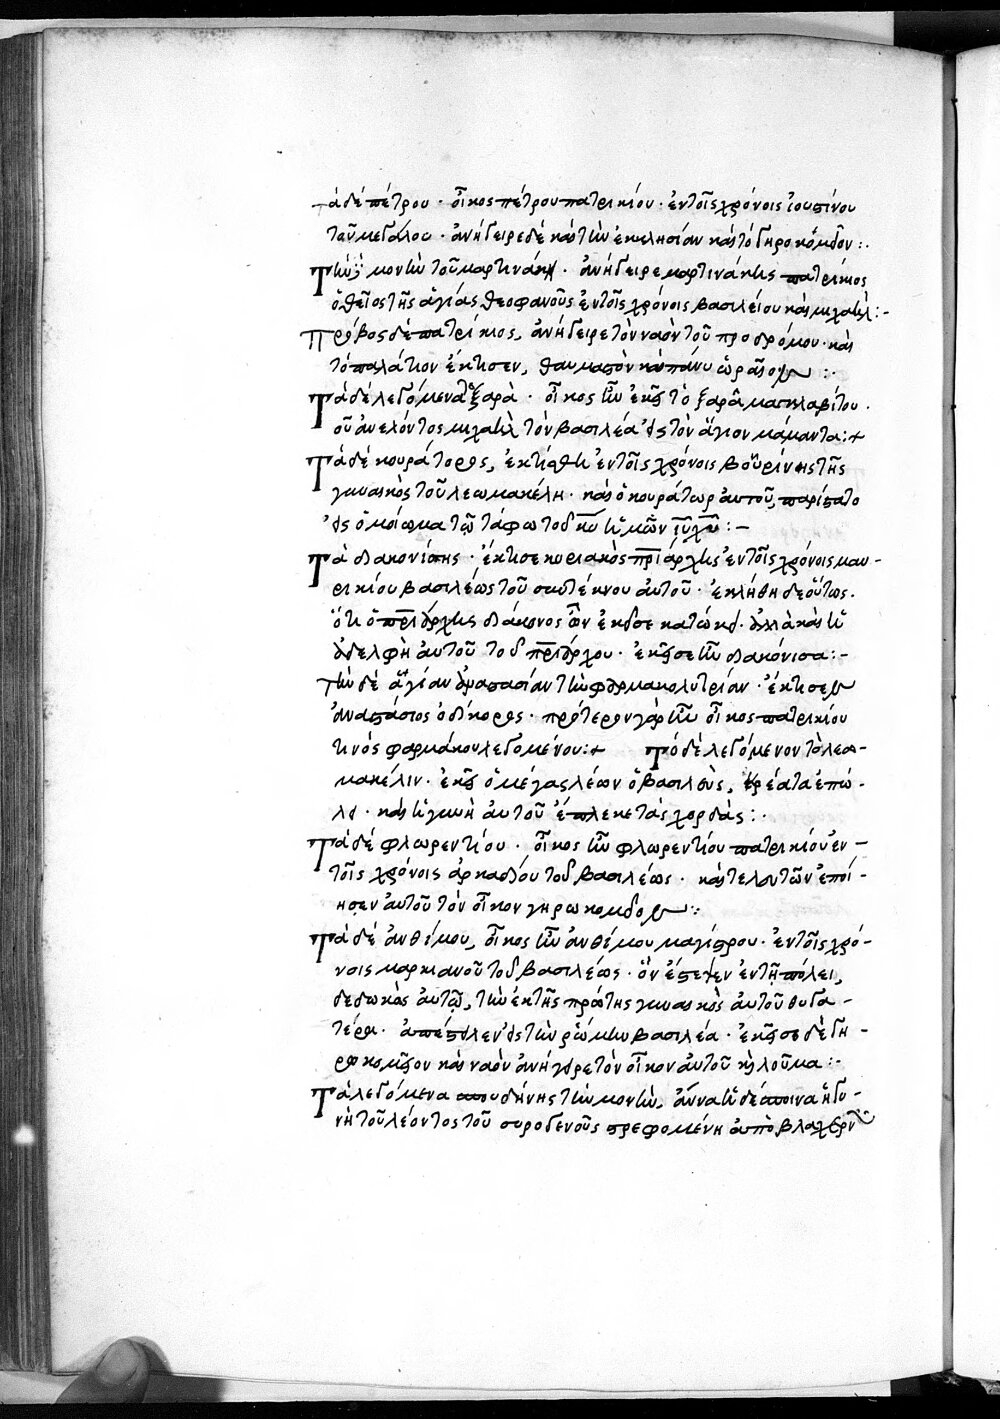 τὰ δὲ πέτρου · οἶκος πέτρου πατρικίου · ἐν τοῖς χρόνοις ἰουστίνου
τοῦ μεγάλου · ἀνήγειρε δὲ καὶ τὴν ἐκκλησίαν καὶ τὸ γηροκομεῖον :·
Τὴν δὲ μονὴν τοῦ μαρτινάκη · ἀνήγειρε μαρτινάκης πατρίκιος
ὁ θεῖος τῆς ἁγίας θεοφανοῦς ἐν τοῖς χρόνοις βασιλείου καὶ μιχαὴλ :-
Πρόβος δὲ πατρίκιος, ἀνήγειρε τὸν ναὸν τοῦ προδρόμου · καὶ
τὸ παλάτιον ἔκτισεν, θαυμαστὸν καὶ πάνυ ὡραῖον :·
Τὰ δὲ λεγόμενα ξηρὰ · οἶκος ἦν ἐκεῖ τὸ ξηρᾶ μαγκλαβίτου ·
οὗ ἀνελόντος μιχαὴλ τὸν βασιλέα εἰς τὸν ἅγιον μάμαντα :+
Τὰ δὲ κουράτορος, ἐκτίσθη ἐν τοῖς χρόνοις βουρίνης τῆς
γυναικὸς τοῦ λέω μακέλη · καὶ ὁ κουράτωρ αὐτοῦ, παρίστατο
εἰς ὁμοίωμα τῷ τάφω τοῦ κυ ἡμῶν ιυ χυ :-
Τὰ διακονίσης · ἔκτισε κυριακὸς πριάρχης ἐν τοῖς χρόνοις μαυ-
ρικίου βασιλέως τοῦ συντέκνου αὐτοῦ · ἐκλήθη δὲ οὕτως ·
ὅτι ὁ πριάρχης διάκονος ὢν ἐκεῖσε κατώκει · ἀλλὰ καὶ ἡ
ἀδελφὴ αὐτοῦ τοῦ πριάρχου · ἐκεῖσε ἦν διακόνισα :-
Τὴν δὲ ἁγίαν ἀναστασίαν τὴν φαρμακολυτρίαν · ἔκτισεν
ἀναστάσιος ὁ δίκορος · πρότερον γὰρ ἦν οἶκος πατρικίου
τινὸς φαρμάκου λεγομένου :+ Τὸ δὲ λεγόμενον τὸ λεω-
μακέλιν · ἐκεῖ ὁ μέγας λέων ὁ βασιλεὺς, κρέατα ἐπώ-
λει · καὶ ἡ γυνὴ αὐτοῦ ἔπλεκε τὰς χορδάς :·
Τὰ δὲ φλωρεντίου · οἶκος ἦν φλωρεντίου πατρικίου ἐν
τοῖς χρόνοις ἀρκαδίου τοῦ βασιλέως · καὶ τελευτῶν ἐποί-
ησεν αὐτοῦ τὸν οἶκον γηρωκομεῖον :·
Τὰ δὲ ἀνθίμου, οἶκος ἦν ἀνθίμου μαγίστρου · ἐν τοῖς χρό-
νοις μαρκιανοῦ τοῦ βασιλέως · ὃν ἔστεψεν ἐν τῇ πόλει,
δεδωκὼς αὐτῷ, τὴν ἐκ τῆς πρώτης γυναικὸς αὐτοῦ θυγα-
τέρα · ἀπέστειλεν εἰς τὴν ῥώμην βασιλέα · ἐκεῖσε δὲ γη-
ροκομεῖον καὶ ναὸν ἀνήγειρε τὸν οἶκον αὐτοῦ κὴ λοῦμα :-
Τὰ λεγόμενα σπουδήνης τὴν μονὴν, ἄννα ἡ δέσποινα ἡ γυ-
νὴ τοῦ λέοντος τοῦ συρογενοῦς στρεφομένη ἀπὸ βλαχερν